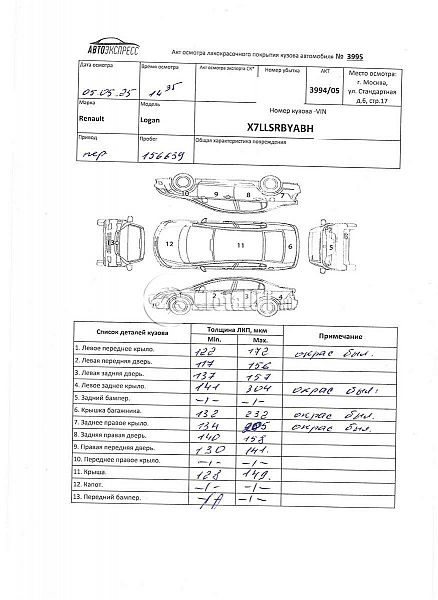 АВТОЭКСПРЕСС
Акт осмотра лакокрасочного покрытия кузова автомобиля № 3995
Дата осмотра Время осмотра Акт осмотра эксперта СК* Номер убытка АКТ Место осмотра:
05.05.25 14 35 3994/05 г. Москва,
ул. Стандартная
д.6, стр.17
Марка Модель Номер кузова -VIN
Renault Logan X7LLSRBYABH
Привод Пробег Общая характеристика повреждений
пер 156639
10 9 8 7
13 12 11 6 5
1 2 3 4
Список деталей кузова Толщина ЛКП, мкм Примечание
Min. Max.
1. Левое переднее крыло. 122 172 окрас был.
2. Левая передняя дверь. 117 156
3. Левая задняя дверь. 137 157
4. Левое заднее крыло. 141 304 окрас был.
5. Задний бампер. -1- -1-
6. Крышка багажника. 132 232 окрас был.
7. Заднее правое крыло. 134 205 окрас был.
8. Задняя правая дверь. 140 158
9. Правая передняя дверь. 130 141.
10. Переднее правое крыло. -1- -1-
11. Крыша. 128 149.
12. Капот. -1- -1-
13. Передний бампер. -1- -1-